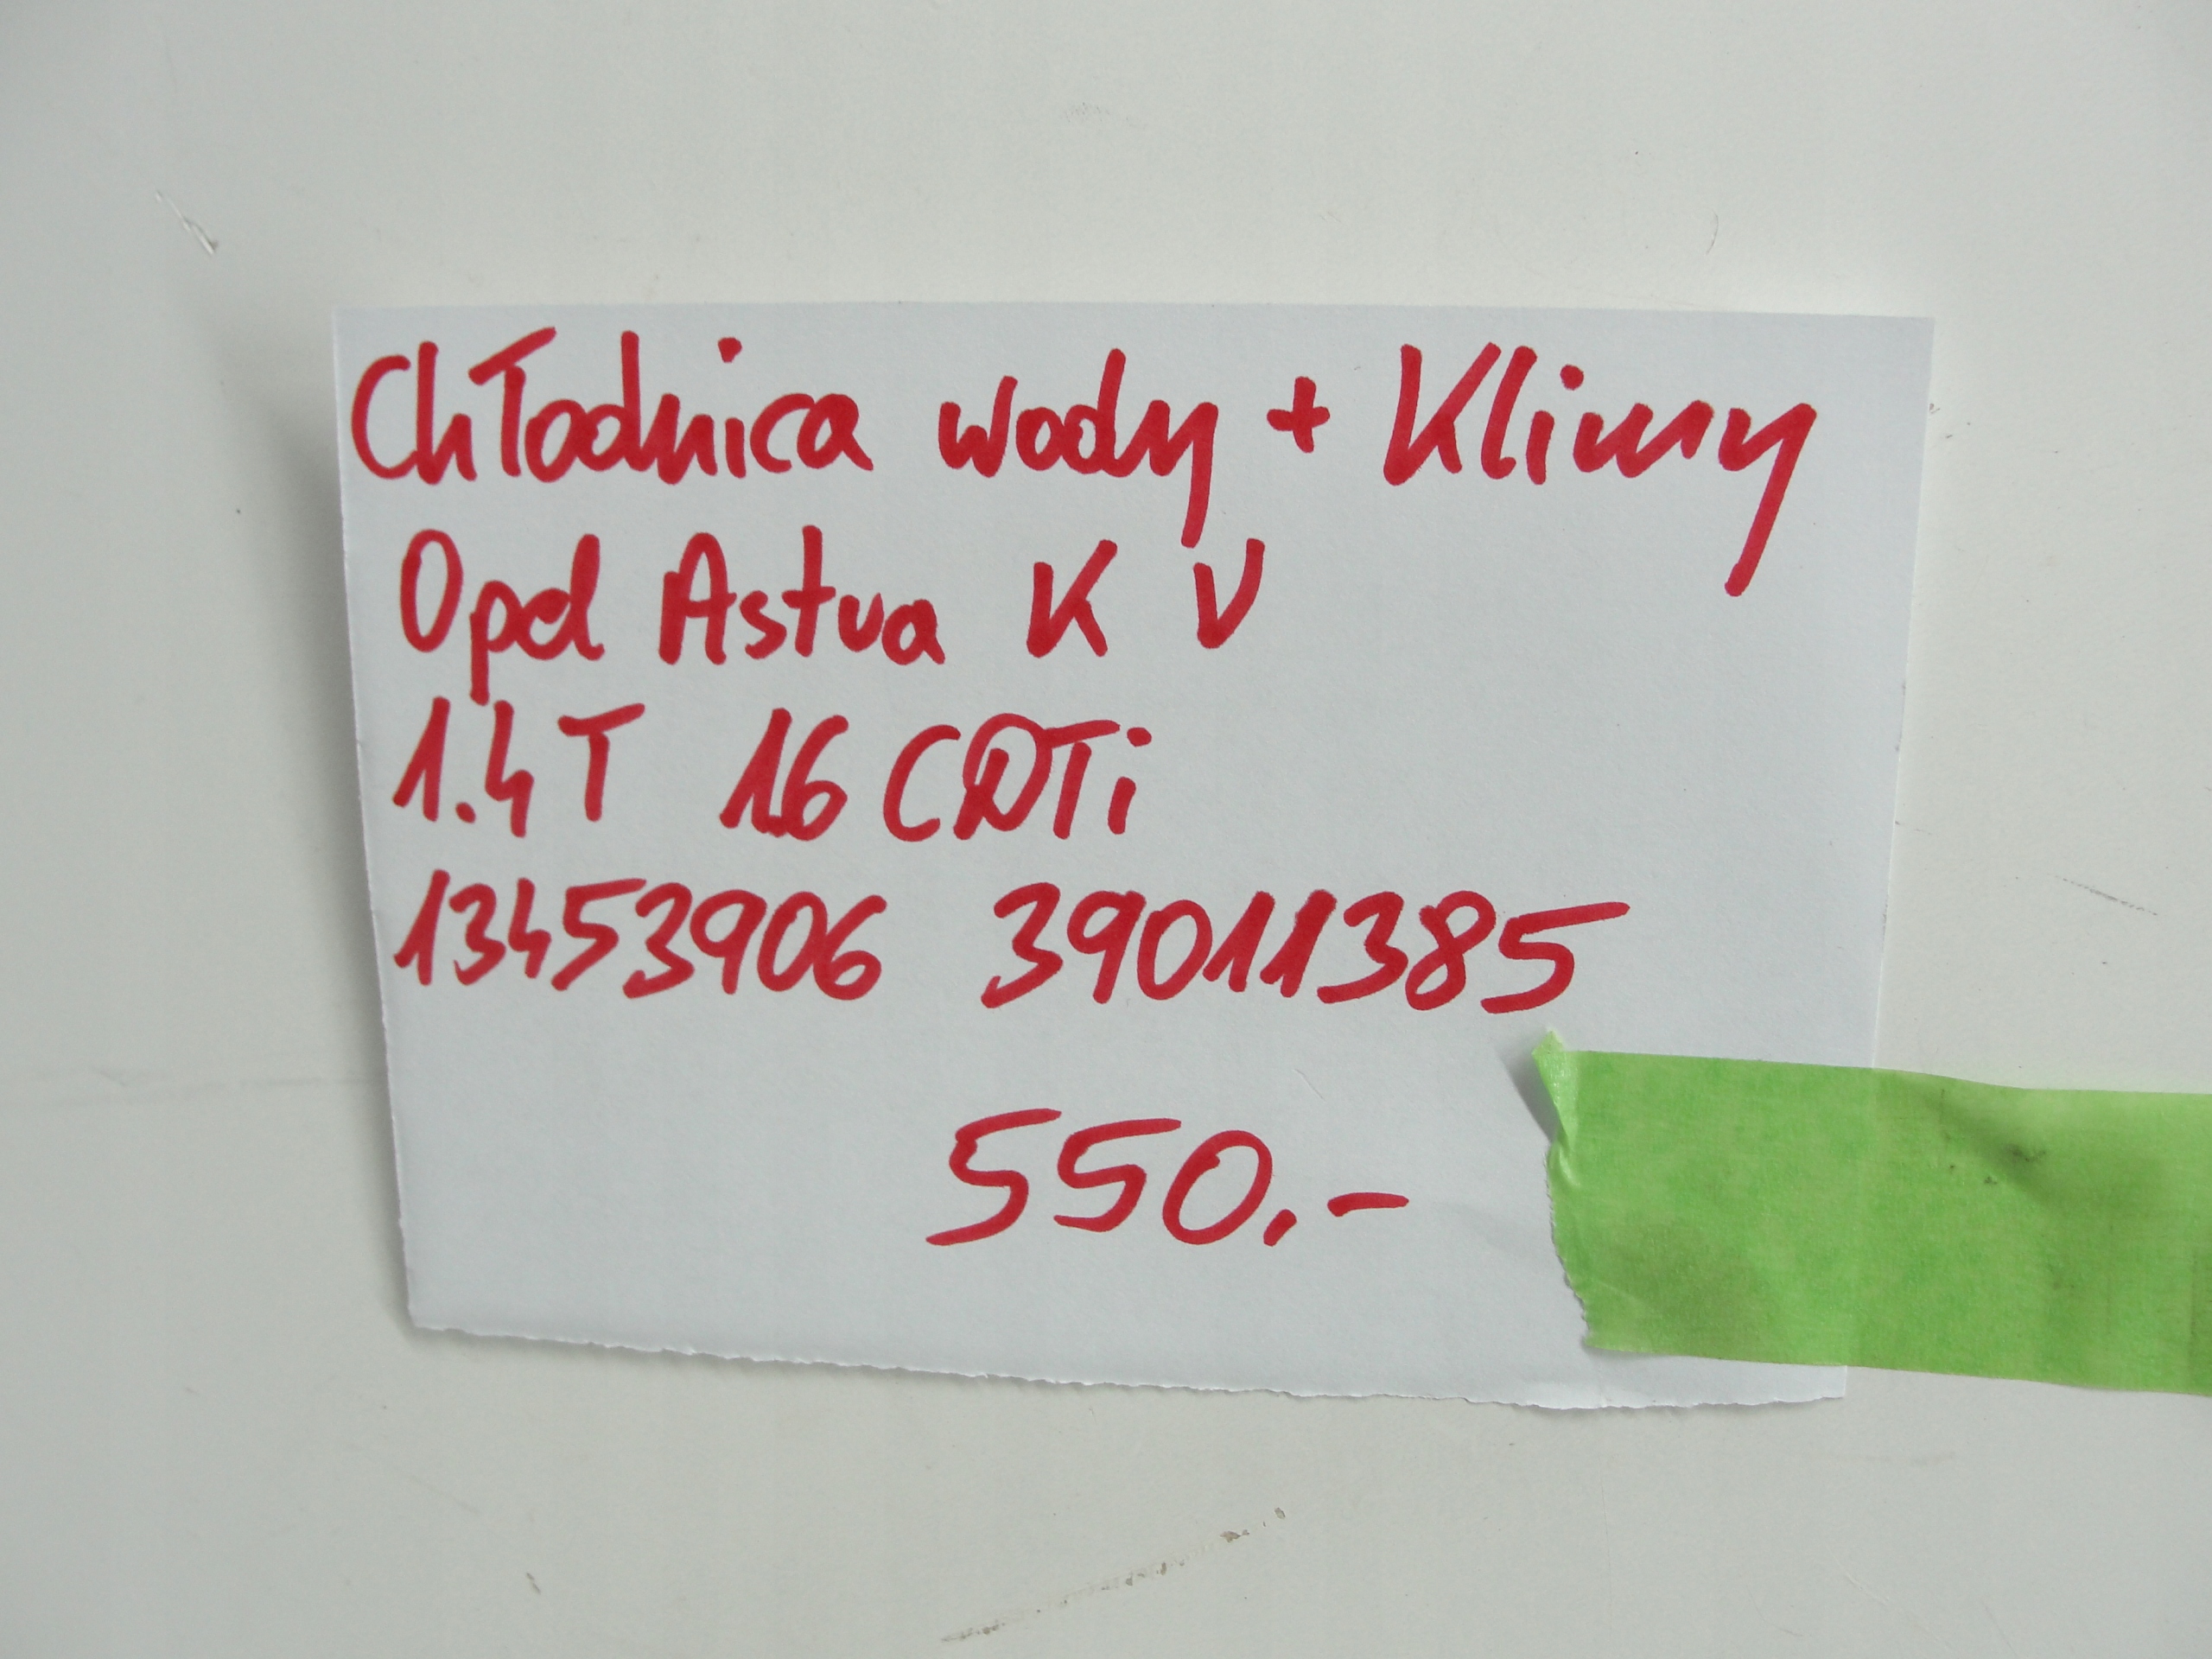 Chłodnica wody + Klimy
Opel Astra K V
1.4 T 1.6 CDTi
13453906 39011385
550.-